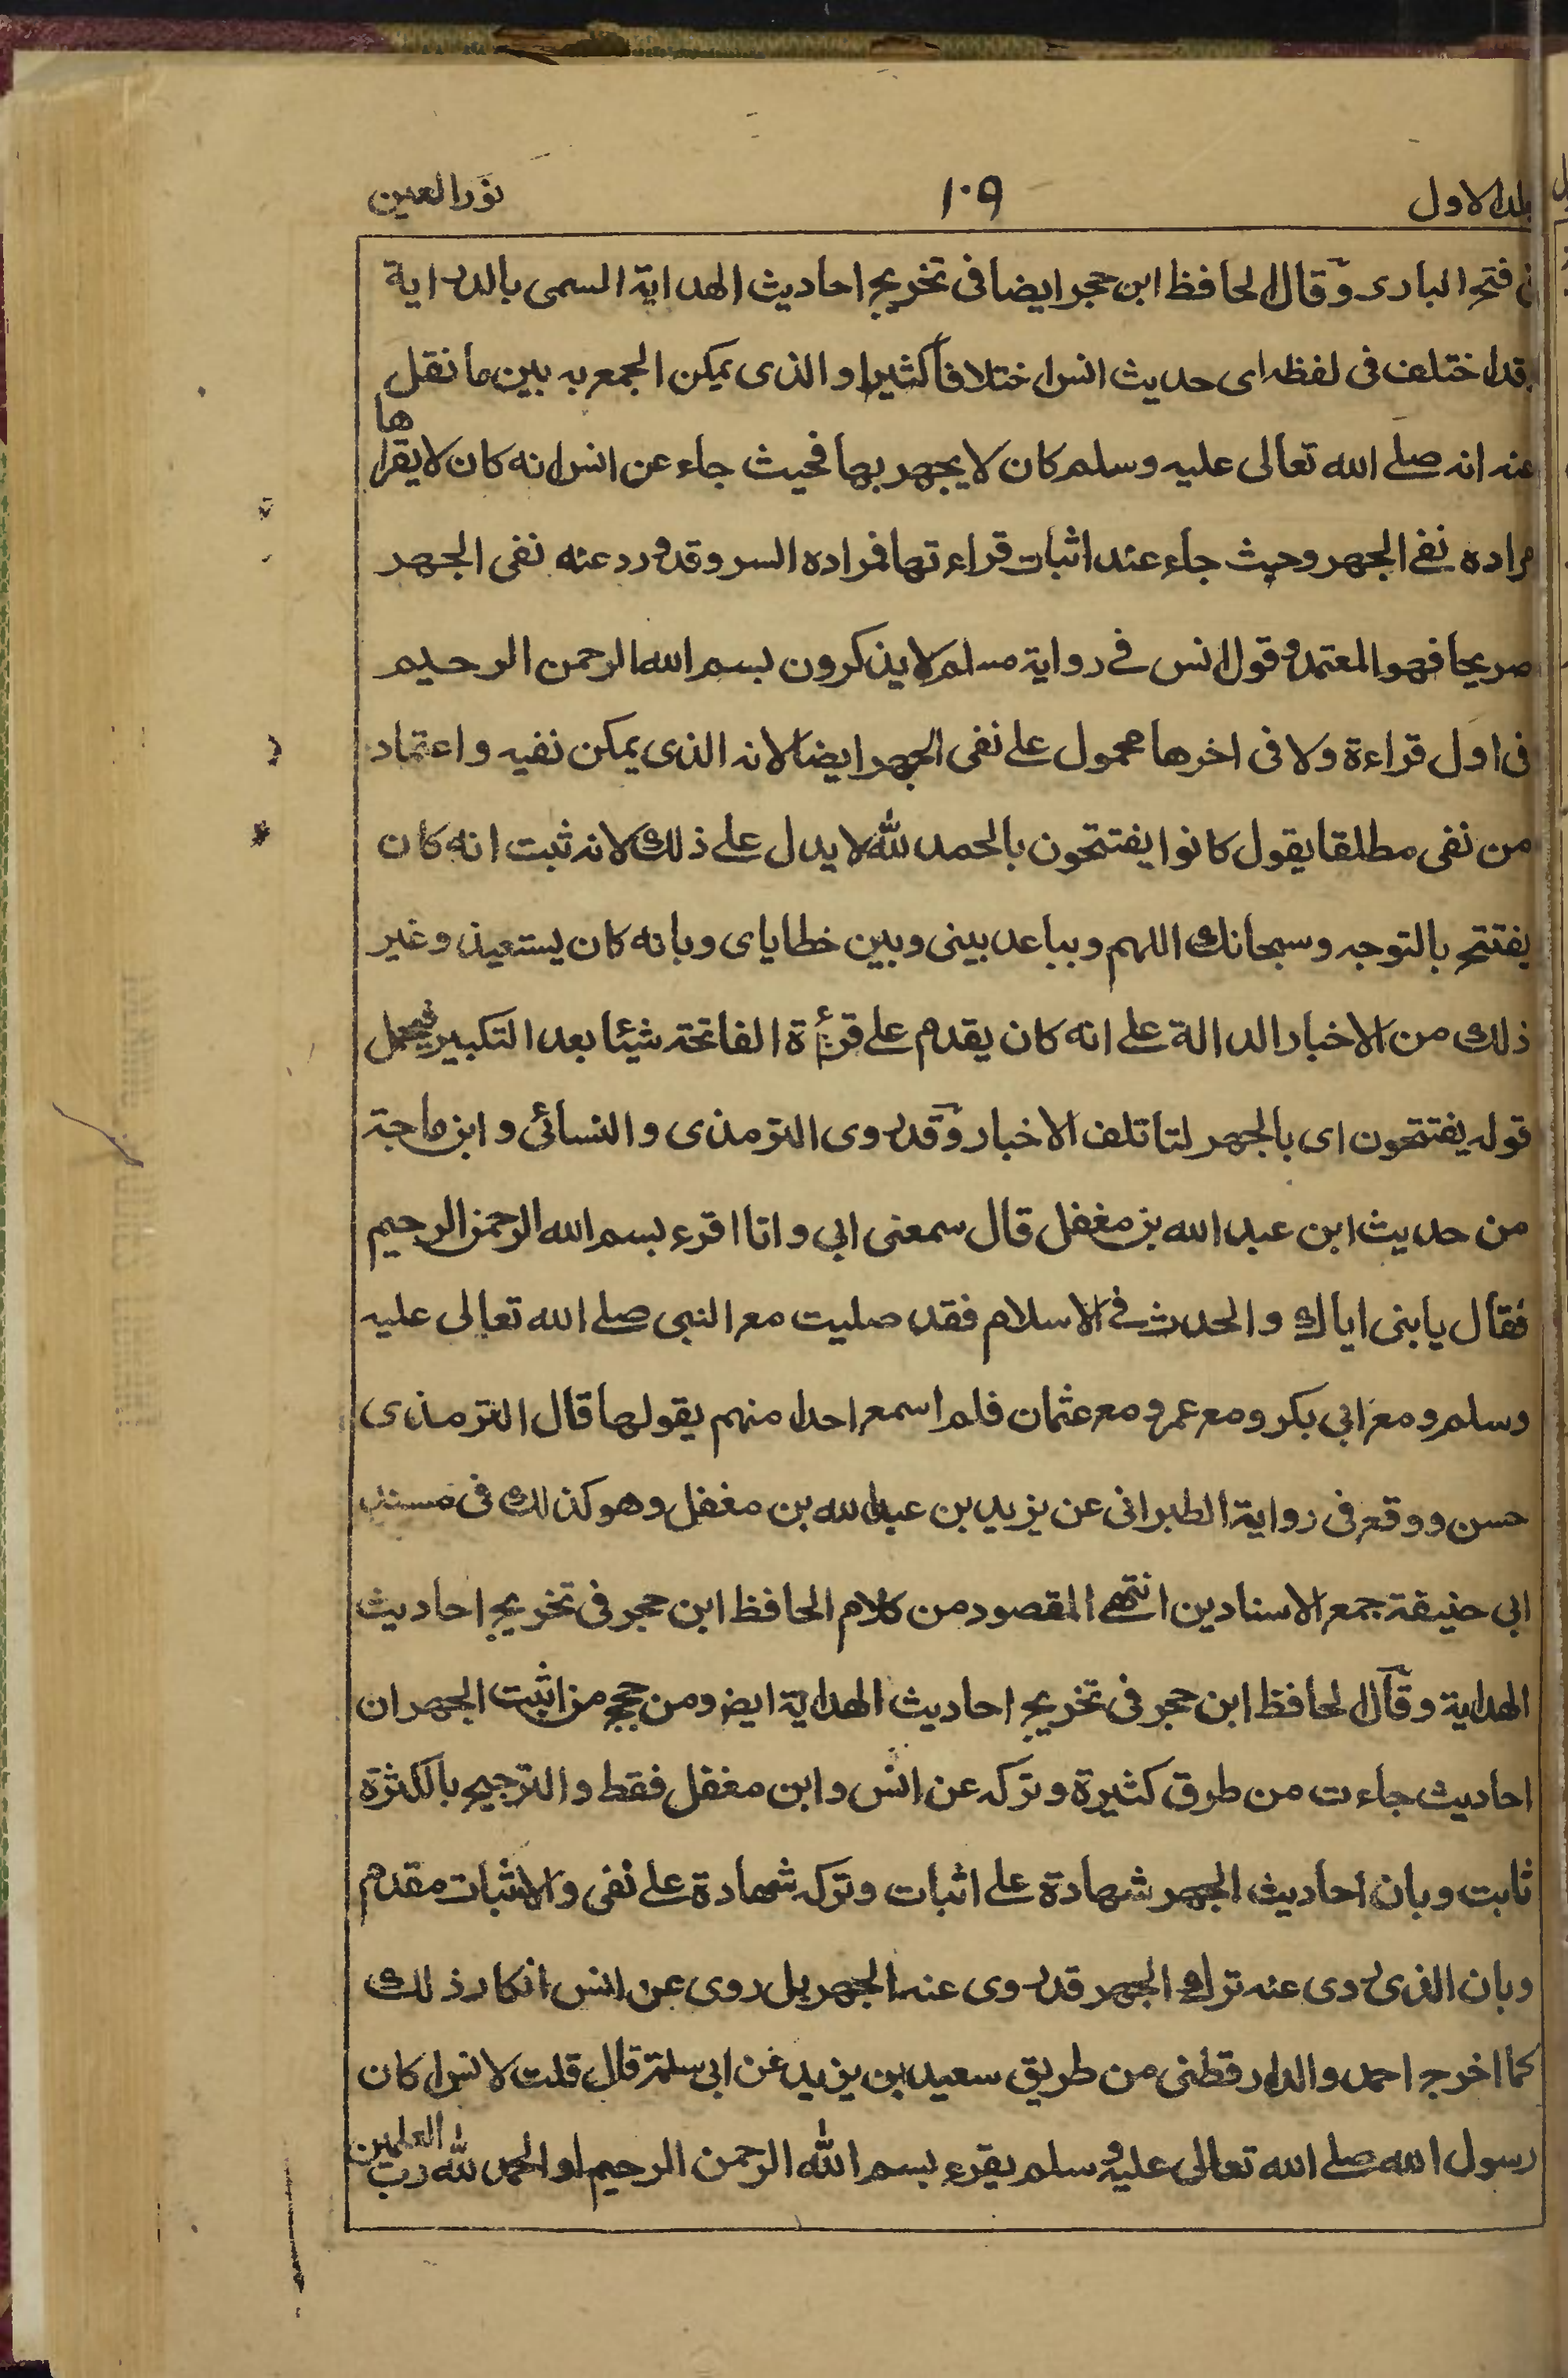 جلد الاول ١٠٩ نور العين
فى فتح البارى وقال الحافظ ابن حجر ايضا فى تخريج احاديث الهداية السمى بالدراية
وقد اختلف فى لفظه اى حديث انس اختلافا كثيرا والذى يمكن الجمع به بين ما نقل
عنه انه صلے الله تعالى عليه وسلم كان لا يجهر بها فحيث جاء عن انس انه كان لا يقراها
مراده نفے الجهر وحيث جاء عنه اثبات قراءتها فمراده السر وقد ورد عنه نفى الجهر
صريحا فهو المعتمد وقول انس فے رواية مسلم لا يذكرون بسم الله الرحمن الرحيم
فى اول قراءة ولا فى اخرها محمول على نفى الجهر ايضا لانه الذى يمكن نفيه واعتماد
من نفى مطلقا بقول كانوا يفتتحون بالحمد لله لا يدل علے ذلك لانه ثبت انه كان
يفتتح بالتوجه وسبحانك اللهم وبباعد بينى وبين خطاياى وبانه كان يستعيذ وغير
ذلك من الاخبار الدالة على انه كان يقدم على قرأة الفاتحة شيئا بعد التكبير فيحمل
قوله يفتتحون اى بالجهر لتاتلف الاخبار وقد روى الترمذى والنسائى وابن ماجة
من حديث ابن عبد الله بن مغفل قال سمعنى ابى وانا اقرء بسم الله الرحمن الرحيم
فقال يا بنى اياك والحدث فے الاسلام فقد صليت مع النبى صلے الله تعالى عليه
وسلم ومع ابى بكر ومع عمر ومع عثمان فلم اسمع احدا منهم يقولها قال الترمذى
حسن ووقع فى رواية الطبرانى عن يزيد بن عبد الله بن مغفل وهو كذلك فى مسند
ابى حنيفة جمع الاسنادين انتهے المقصود من كلام الحافظ ابن حجر فى تخريج احاديث
الهداية وقال الحافظ ابن حجر فى تخريج احاديث الهداية ايض ومن حجج من اثبت الجهر ان
احاديث جاءت من طرق كثيرة وتركه عن انس وابن مغفل فقط والترجيح بالكثرة
ثابت وبان احاديث الجهر شهادة على اثبات وتركه شهادة على نفى والاثبات مقدم
وبان الذى روى عنه ترك الجهر قد روى عنه الجهر بل روى عن انس انكار ذلك
كما اخرج احمد والدارقطنى من طريق سعيد بن يزيد عن ابى سلمة قال قلت لانس اكان
رسول الله صلے الله تعالى عليه وسلم يقرء بسم الله الرحمن الرحيم او الحمد لله رب العلمين